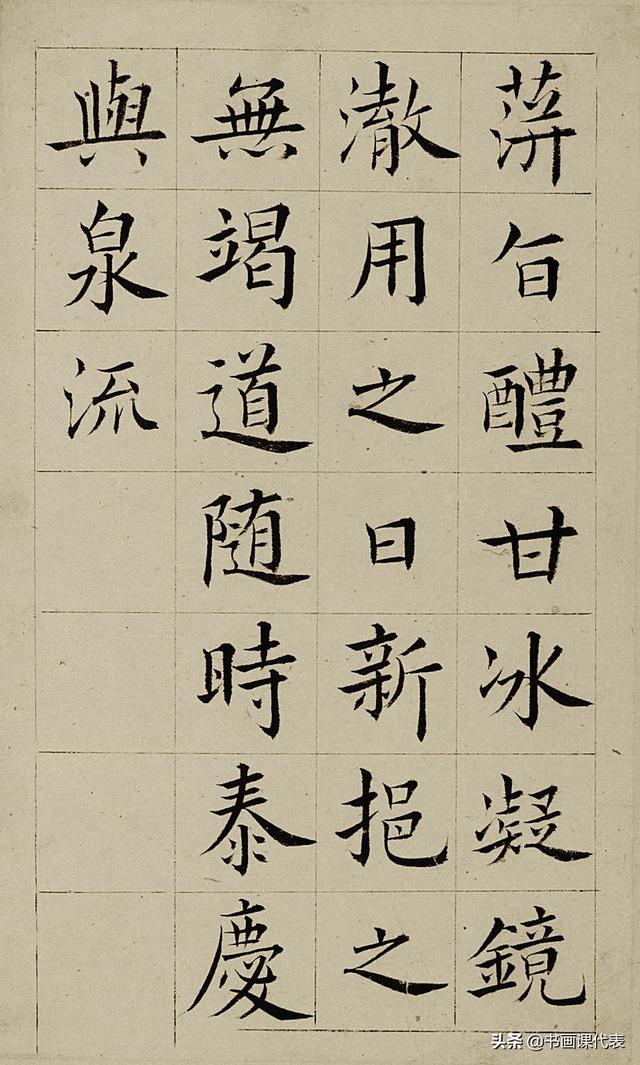 蓱旨醴甘冰凝鏡
澈用之日新挹之
無竭道随時泰慶
與泉流
头条 @书画课代表